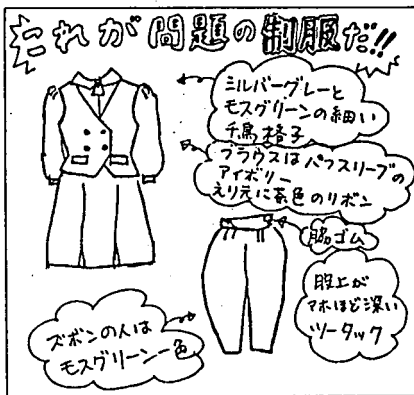 これが問題の制服だ!!
ミルバーグレーと
モスグリーンの細い
千鳥格子
ブラウスはパフスリーブの
アイボリー
えり元に茶色のリボン
脇ゴム
股上が
アホほど深い
ツータック
ズボンの人は
モスグリーン一色